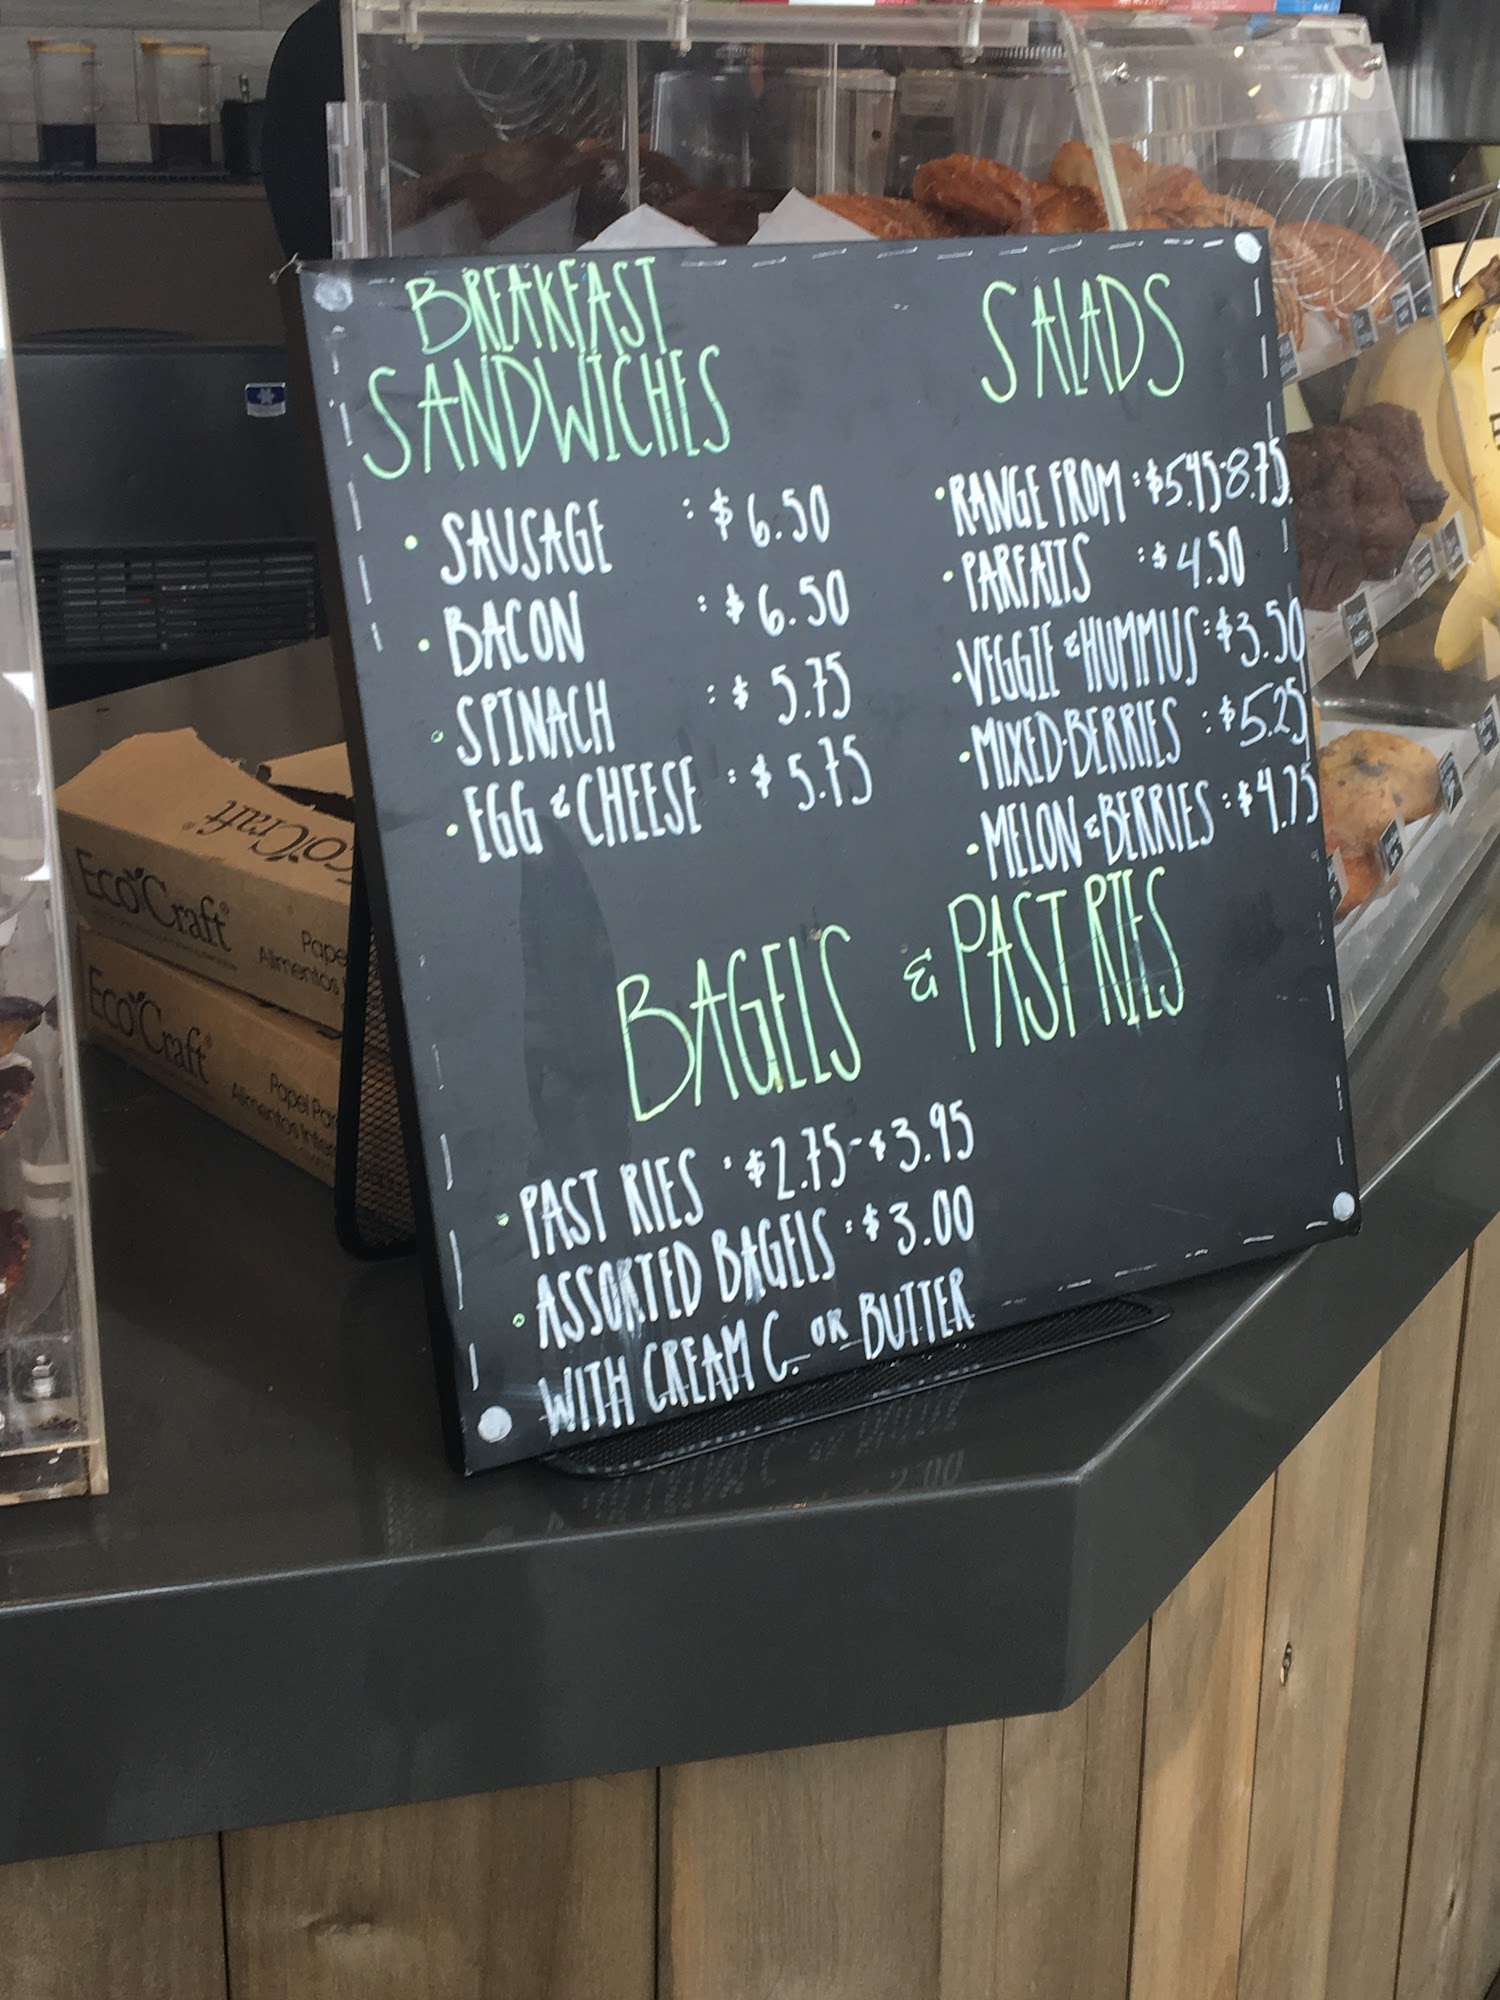 BREAKFAST
SANDWICHES
• SAUSAGE : $6.50
• BACON : $6.50
• SPINACH : $5.75
• EGG & CHEESE : $5.75
SALADS
• RANGE FROM : $5.45-8.75
• PARFAITS : $4.50
• VEGGIE & HUMMUS : $3.50
• MIXED-BERRIES : $5.25
• MELON & BERRIES : $4.75
BAGELS & PASTRIES
• PASTRIES : $2.75-$3.95
• ASSORTED BAGELS : $3.00
WITH CREAM C. OR BUTTER
Eco'Craft
Eco'Craft®
Alimentos
Eco'Craft®
Papel Par
Alimentos Inter